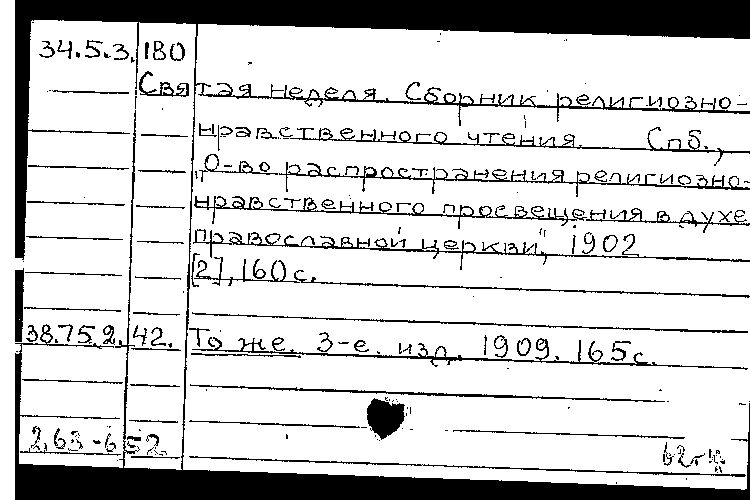 34.5.3. 180
Святая неделя. Сборник религиозно-
нравственного чтения. Спб.,
"О-во распространения религиозно-
нравственного просвещения в духе
православной церкви", 1902
[2], 160 с.
38.75.2. 42. То же. 3-е. изд. 1909. 165 с.
2,63-652